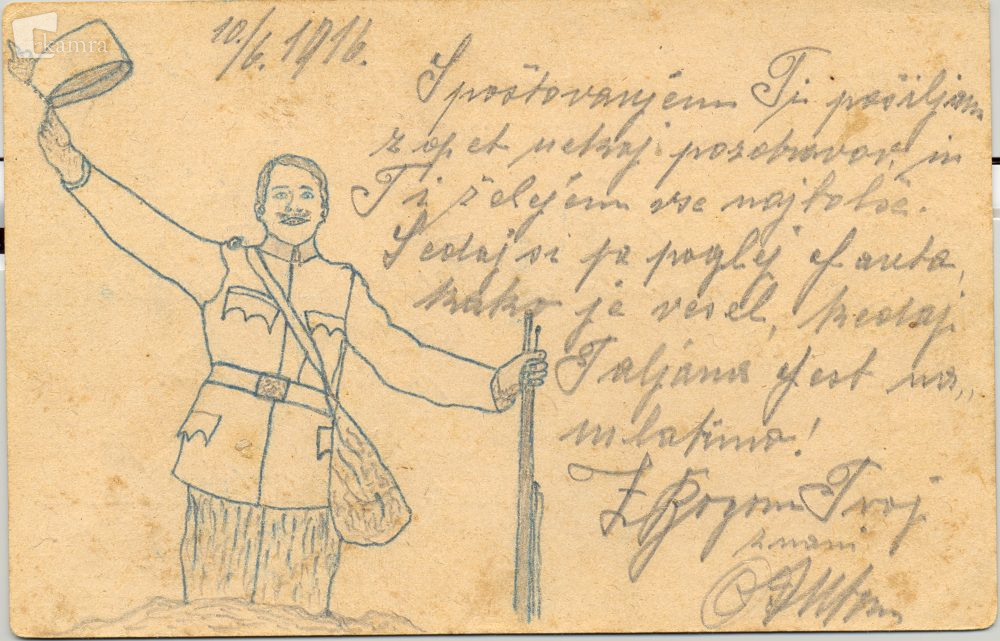 kamra
10./6. 1916.
S poštovanjem Ti pošiljam
zopet nekaj pozdravov, in
Ti želejem vse najbolše.
Sedaj si pa poglej Fanta,
kako je vesel, kedaj
Taljana fest na„
mlatimo!
Z Bogom Tvoj
znani